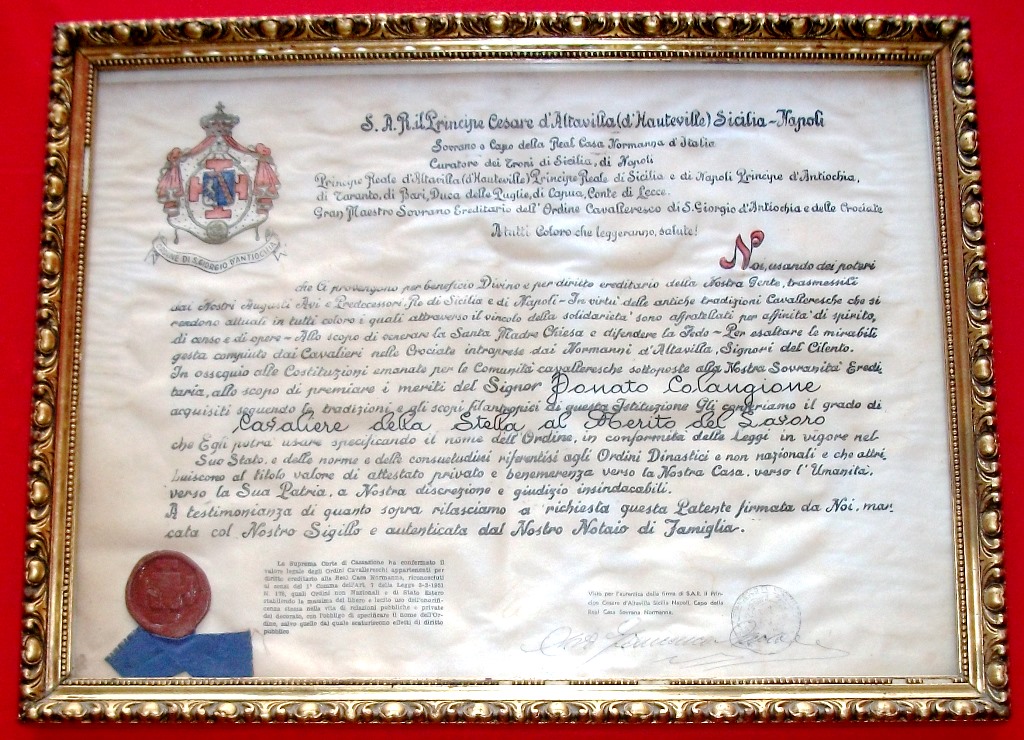 S. A. R. il Principe Cesare d'Altavilla (d'Hauteville) Sicilia-Napoli
Sovrano e Capo della Real Casa Normanna d'Italia
Curatore dei Troni di Sicilia, di Napoli
Principe Reale d'Altavilla (d'Hauteville) Principe Reale di Sicilia e di Napoli Principe d'Antiochia,
di Taranto, di Bari, Duca delle Puglie, di Capua, Conte di Lecce.
Gran Maestro Sovrano Ereditario dell'Ordine Cavalleresco di S. Giorgio d'Antiochia e delle Crociate
A tutti Coloro che leggeranno, salute!
ORDINE DI S. GIORGIO D'ANTIOCHIA
Noi, usando dei poteri
che Ci provengono per beneficio Divino e per diritto ereditario della Nostra Gente, trasmessili
dai Nostri Augusti Avi e Predecessori, Re di Sicilia e di Napoli - In virtu' delle antiche tradizioni Cavalleresche che si
rendono attuali in tutti coloro i quali attraverso il vincolo della solidarieta' sono affratellati per affinita' di spirito,
di censo e di opere - Allo scopo di venerare la Santa Madre Chiesa e difendere la Fede - Per esaltare le mirabili
gesta compiute dai Cavalieri nelle Crociate intraprese dai Normanni d'Altavilla, Signori del Cilento.
In ossequio alle Costituzioni emanate per le Comunita' cavalleresche sottoposte alla Nostra Sovranita' Eredi-
taria, allo scopo di premiare i meriti del Signor Donato Colangione
acquisiti seguendo le tradizioni e gli scopi filantropici di questa Istituzione Gli conferiamo il grado di
Cavaliere della Stella al Merito del Lavoro
che Egli potra' usare specificando il nome dell'Ordine, in conformita' delle Leggi in vigore nel
Suo Stato, e delle norme e delle consuetudini riferentisi agli Ordini Dinastici e non nazionali e che attri-
buiscono al titolo valore di attestato privato e benemerenza verso la Nostra Casa, verso l'Umanita',
verso la Sua Patria, a Nostra discrezione e giudizio insindacabili.
A testimonianza di quanto sopra rilasciamo a richiesta questa Patente firmata da Noi, mar-
cata col Nostro Sigillo e autenticata dal Nostro Notaio di Famiglia.
La Suprema Corte di Cassazione ha confermato il
valore legale degli Ordini Cavallereschi appartenenti per
diritto ereditario alla Real Casa Normanna, riconosciuti
ai sensi del 1° Comma dell'Art. 7 della Legge 3-3-1951
N. 178, quali Ordini non Nazionali e di Stato Estero
stabilendo la massima del libero e lecito uso dell'onorifi-
cenza stessa nella vita di relazioni pubbliche e private
del decorato, con l'obbligo di specificare il nome dell'Or-
dine, salvo quello dal quale scaturiscono effetti di diritto
pubblico
Visto per l'autentica della firma di S.A.R. il Prin-
cipe Cesare d'Altavilla Sicilia Napoli, Capo della
Real Casa Sovrana Normanna.